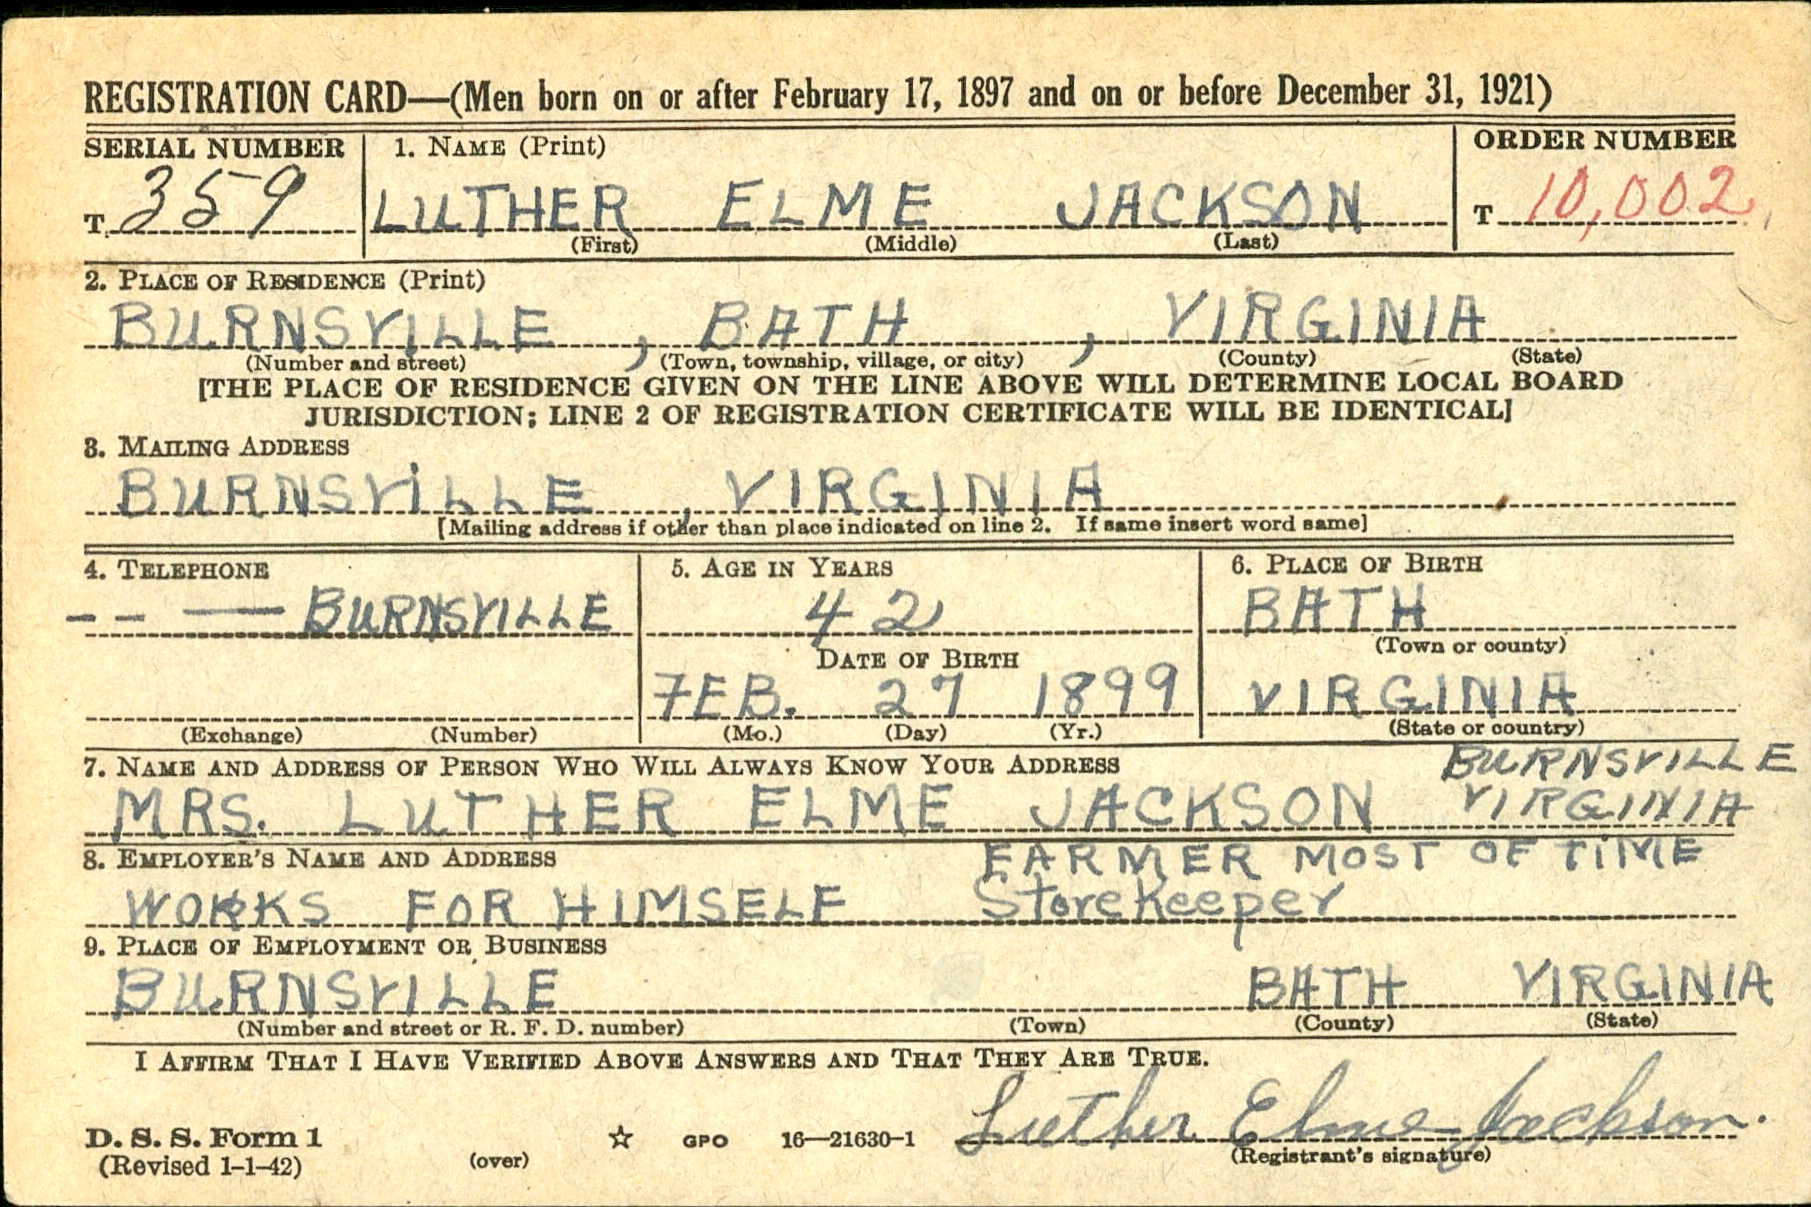 REGISTRATION CARD—(Men born on or after February 17, 1897 and on or before December 31, 1921)
SERIAL NUMBER 1. NAME (Print) ORDER NUMBER
T 359 LUTHER ELME JACKSON T 10,002
(First) (Middle) (Last)
2. PLACE OF RESIDENCE (Print)
BURNSVILLE , BATH , VIRGINIA
(Number and street) (Town, township, village, or city) (County) (State)
[THE PLACE OF RESIDENCE GIVEN ON THE LINE ABOVE WILL DETERMINE LOCAL BOARD
JURISDICTION; LINE 2 OF REGISTRATION CERTIFICATE WILL BE IDENTICAL]
3. MAILING ADDRESS
BURNSVILLE , VIRGINIA
[Mailing address if other than place indicated on line 2. If same insert word same]
4. TELEPHONE 5. AGE IN YEARS 6. PLACE OF BIRTH
-- — BURNSVILLE 42 BATH
DATE OF BIRTH (Town or county)
FEB. 27 1899 VIRGINIA
(Exchange) (Number) (Mo.) (Day) (Yr.) (State or country)
7. NAME AND ADDRESS OF PERSON WHO WILL ALWAYS KNOW YOUR ADDRESS BURNSVILLE
MRS. LUTHER ELME JACKSON VIRGINIA
8. EMPLOYER'S NAME AND ADDRESS FARMER MOST OF TIME
WORKS FOR HIMSELF Storekeeper
9. PLACE OF EMPLOYMENT OR BUSINESS
BURNSVILLE BATH VIRGINIA
(Number and street or R. F. D. number) (Town) (County) (State)
I AFFIRM THAT I HAVE VERIFIED ABOVE ANSWERS AND THAT THEY ARE TRUE.
Luther Elme Jackson.
D. S. S. Form 1 ☆ GPO 16—21630-1 (Registrant's signature)
(Revised 1-1-42) (over)